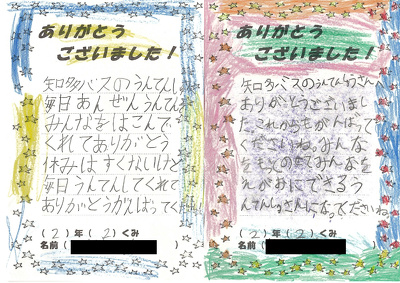 ありがとう
ございました！
知多バスのうんてんし
毎日あんぜんうんてん
みんなをはこんで
くれてありがとう
休みはすくないけど
毎日うんてんしてくれて
ありがとうがんばってください
(2)年(2)くみ
名前( )
ありがとう
ございました！
知多バスのうんてんしゅさん
ありがとうございまし
た。これからもがんばって
くださいね。みんな
をもえがおにできるう
んてんしゅさんになってくださいね
(2)年(2)くみ
名前( )